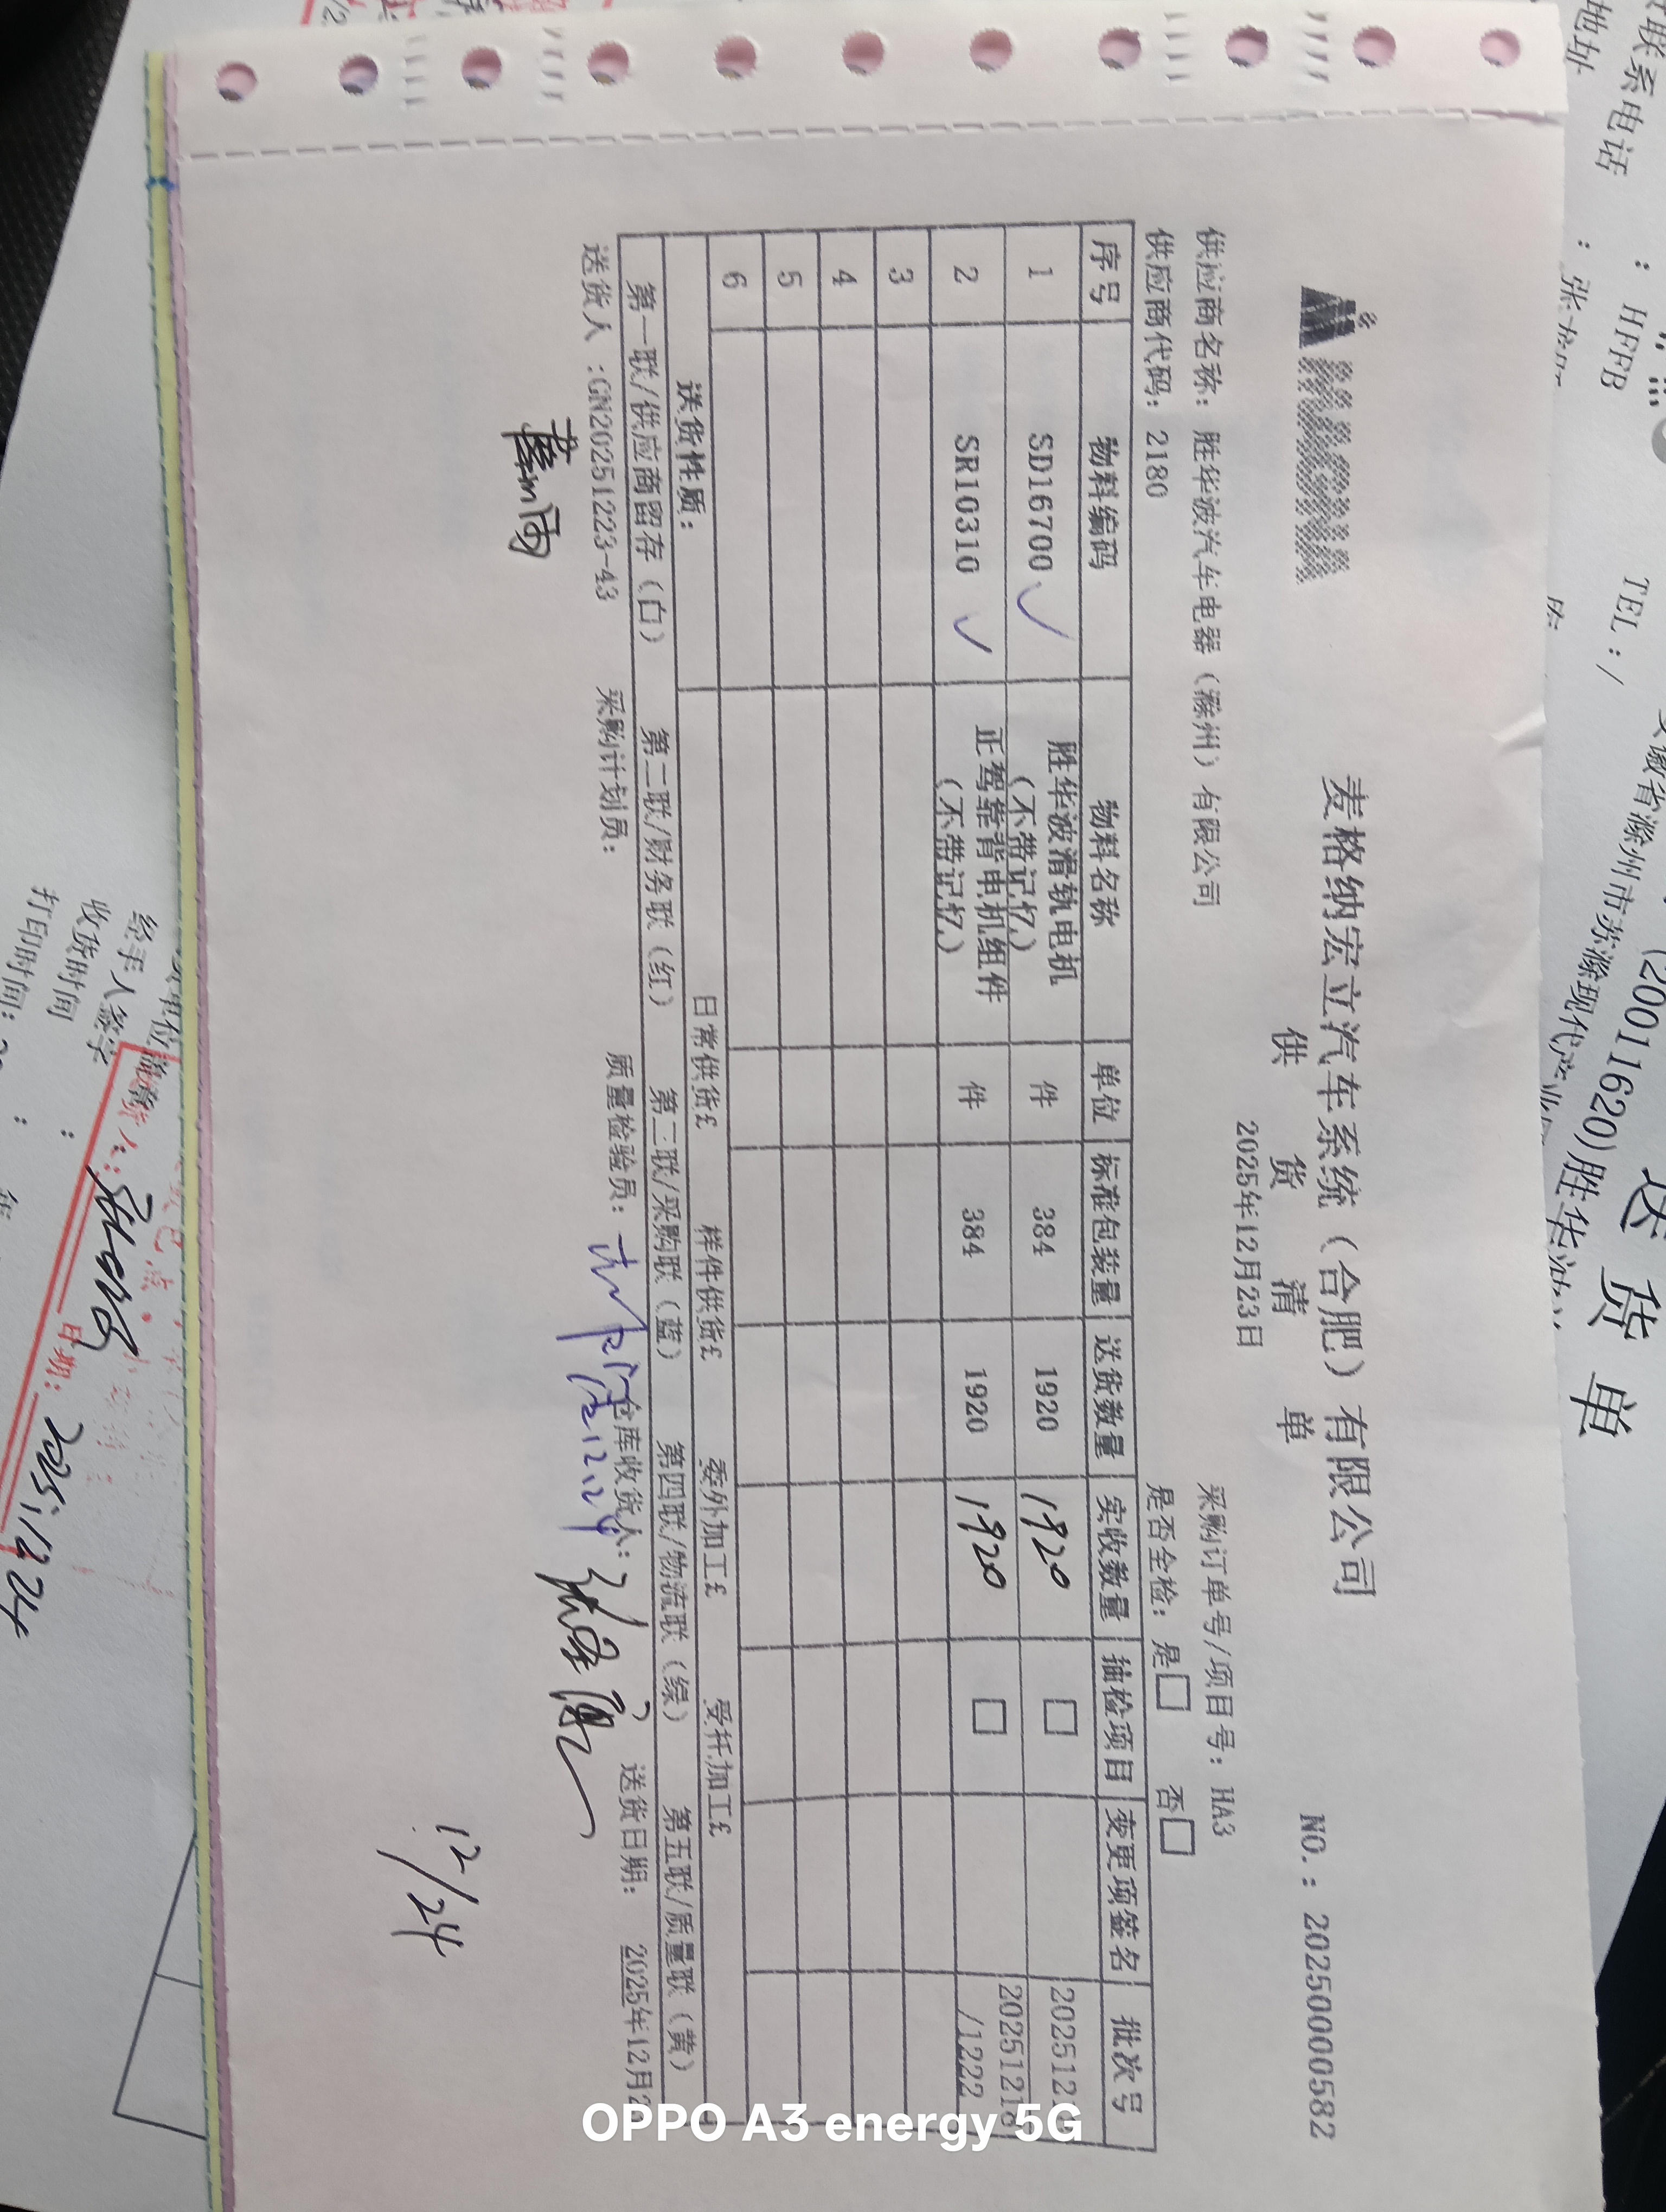 麦格纳宏立汽车系统（合肥）有限公司
供 货 清 单
NO.：20250000582
2025年12月23日
供应商名称：胜华波汽车电器（滁州）有限公司
采购订单号/项目号：HA3
供应商代码：2180
是否全检：是□ 否□
序号 物料编码 物料名称 单位 标准包装量 送货数量 实收数量 抽检项目 变更项签名 批次号
1 SD16700 胜华波滑轨电机（不带记忆） 件 384 1920 1920 □
2 SR10310 正驾靠背电机组件（不带记忆） 件 384 1920 1920 □ /1222
3
4
5
6
送货性质： 日常供货£ 样件供货£ 委外加工£ 受托加工£
第一联/供应商留存（白） 第二联/财务联（红） 第三联/采购联（蓝） 第四联/物流联（绿） 第五联/质量联（黄）
送货人：GN20251223-43 采购计划员： 质量检验员： 仓库收货人： 送货日期： 2025年12月
12/24
送 货 单
(20011620)胜华波
安徽省滁州市苏滁现代产业
TEL：/
：HFFB
联系电话
地址
经手人签字
收货时间
打印时间：
日期：2025.12.24
OPPO A3 energy 5G